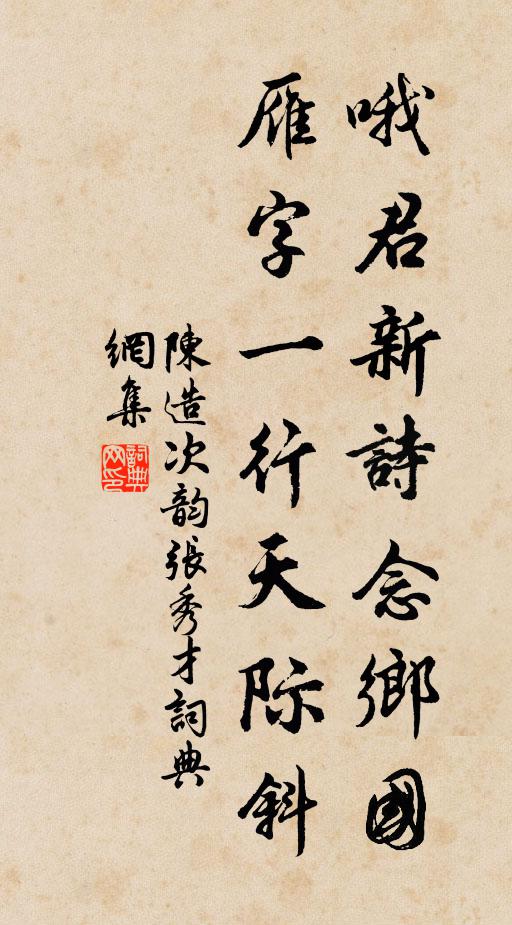 哦君新詩念鄉國
雁字一行天际斜
陳造次韵張秀才詞典
網集
詞典
网印